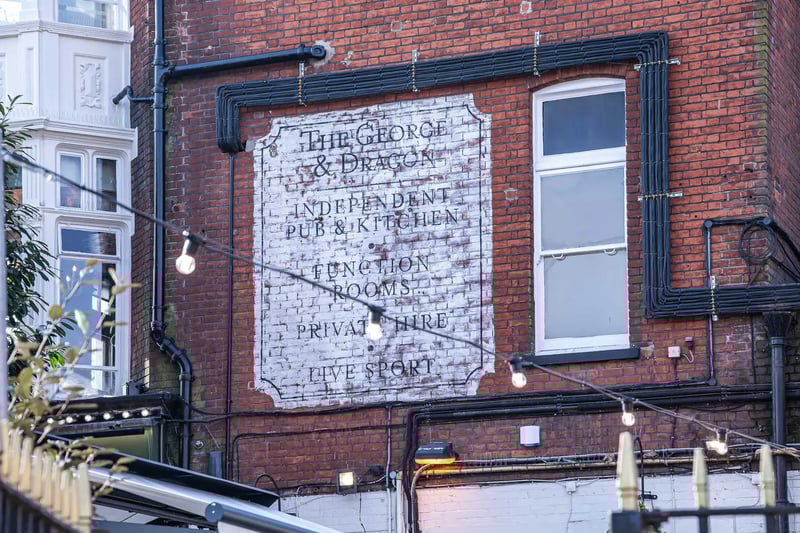 THE GEORGE
& DRAGON
INDEPENDENT
PUB & KITCHEN
FUNCTION
ROOMS
PRIVATE HIRE
LIVE SPORT